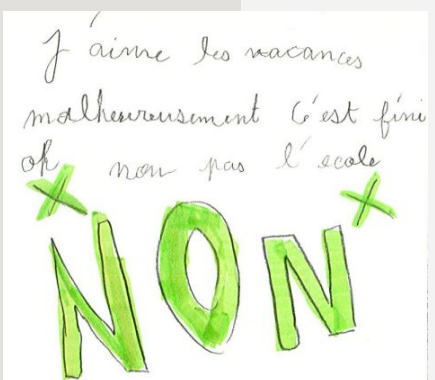 J'aime les vacances
malheureusement c'est fini
oh non pas l'école
NON